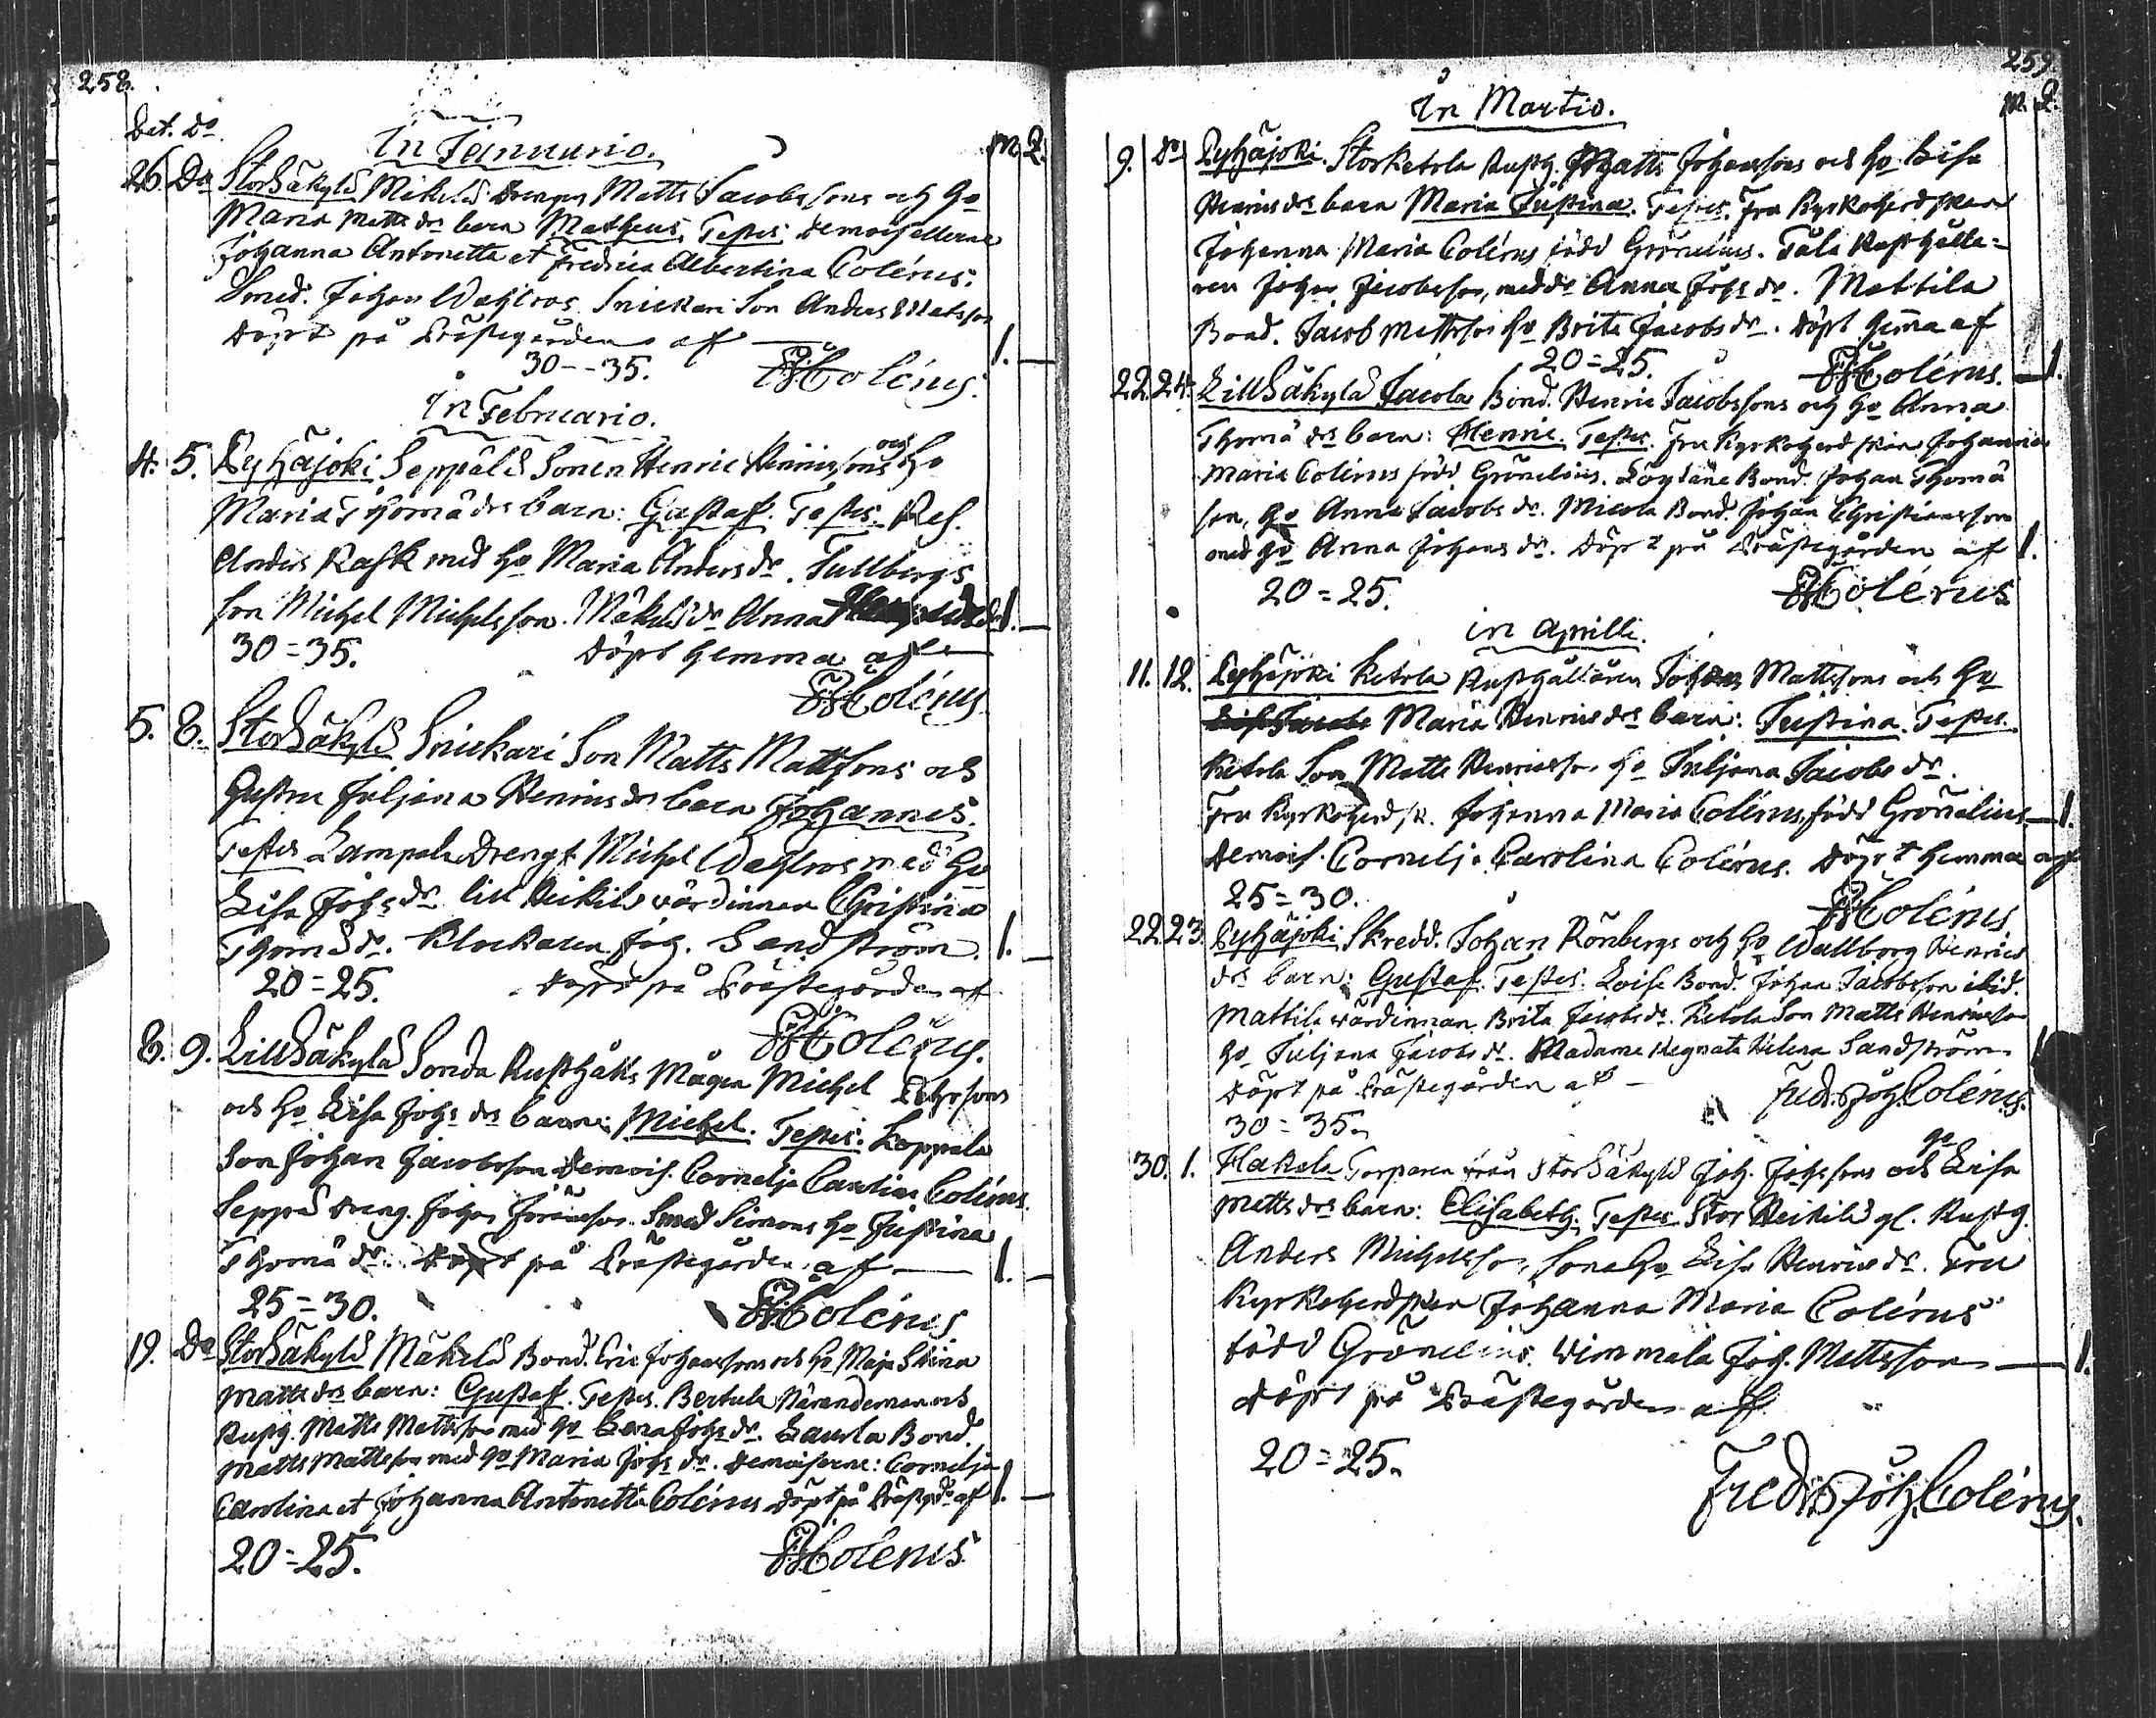 258.
Dat. Do
In Januario.
M. Q.
26. Do StorSäkylä Mäkilä Drengs Matts Jacobssons och Ho
Maria Matts drs barn Matheus. Testes Demoisellerne
Johanna Antonetta et Fredrica Albertina Colérus.
Smed. Johan Wahlroos. Snickari Son Anders Matsson
döpt på Prästegården af 1.
30--35. FJColérus.
In Februario.
4. 5. Pyhäjoki Seppälä Sonen Henric Henricssons och Ho
Maria Thomä drs barn: Gustaf. Testes. Ref.
Anders Rask med Ho Maria Anders dr. Tullbergs
son Michel Michelsson. Mäkilä dr Anna 1.
30=35. Döpt hemma af
FJColérus
5. 8. StorSäkylä Snickari Son Matts Mattssons och
Hustru Juljana Henrics drs barn Johannes.
Testes Lampola Drengt Michel Wahlroos med Ho
Lisa Johs dr. lill Heikilä värdinnan Christina
Thomä dr. Klockaren Joh. Sandström. 1.
20=25. Döpt på Prästegården af
FJColérus.
8. 9. LillSäkylä Sonda Rusthålls Mågen Michel
och Ho Lisa Johs drs barn: Michel. Testes. Koppala
Son Johan Jacobsson Demois. Cornelja Carolina Colérus.
Seppä Dreng. Johan Smed Simons Ho Justina
Thomä dr. Döpt på Prästegården af 1.
25=30. FJColérus
19. Do StorSäkylä Mäkelä Bond. Eric Johanssons och Ho Maja Stina
Matts drs barn: Gustaf. Testes. Bertula Nämndeman och
Rusth. Matts Mattsson med Ho Lena Johs dr. Laurla Bond.
Matts Mattsson med Ho Maria Johs dr. Demoiserne: Cornelja
Carolina et Johanna Antonetta Colérus döpt på Prästgdn af 1.
20=25. FJColérus
259
In Martio.
M. Q.
9. Do Pyhäjoki. Storketola Rusth. Matts Johanssons och Ho Lisa
Henrics drs barn Maria Justina. Testes. Fru Kyrkoherdskan
Johanna Maria Colérus född Grönelius. Tåla Rusthålla=
ren Johan Jacobsson, med dr Anna Johs dr. Mattila
Bond. Jacob Mattsson Ho Brita Jacobs dr. döpt hema af
20=25. FJColérus. 1.
22. 24. LillSäkylä Jacola Bond. Henric Jacobssons och Ho Anna
Thomä drs barn: Henric. Testes. Fru Kyrkoherdskan Johanna
Maria Colérus född Grönelius. Löytäne Bond. Johan Thomä
son, Ho Anna Jacobs dr. Micola Bond. Johan Christiansson
med Ho Anna Johans dr. Döpt på Prästegården af 1.
20=25. FJColérus
in Aprilli.
11. 12. Pyhäjoki Ketola Rusthållaren Johan Mattssons och Ho
Maria Henrics drs barn: Justina. Testes.
Ketola Son Matts Henricsson Ho Juljana Jacobs dr.
Fru Kyrkoherdsk. Johanna Maria Colérus, född Grönelius 1.
Demois. Cornelja Carolina Colérus. Döpt hemma af
25=30. FJColérus
22. 23. Pyhäjoki Skredd. Johan Rönbergs och Ho Wallborg Henrics
drs barn: Gustaf. Testes. Loise Bond. Johan Jacobsson ibid.
Mattila värdinnan Brita Jacobs dr. Ketola Son Matts Henricsson
Ho Juljana Jacobs dr. Madame Regnata Helena Sandström 1
döpt på Prästegården af
30=35. Fredr. Joh. Colérus.
30. 1. Hakala Torparen från StorSäkylä Joh. Johssons och Ho Lisa
Matts drs barn: Elisabeth. Testes StorHeikilä gl. Rusth.
Anders Michelsson, Sona Ho Lisa Henrics dr. Fru
Kyrkoherdskan Johanna Maria Colérus
född Grönelius. Wimmala Joh. Mattsson 1.
Döpt på Prästegården af
20=25.
Fredr. Joh. Colérus.